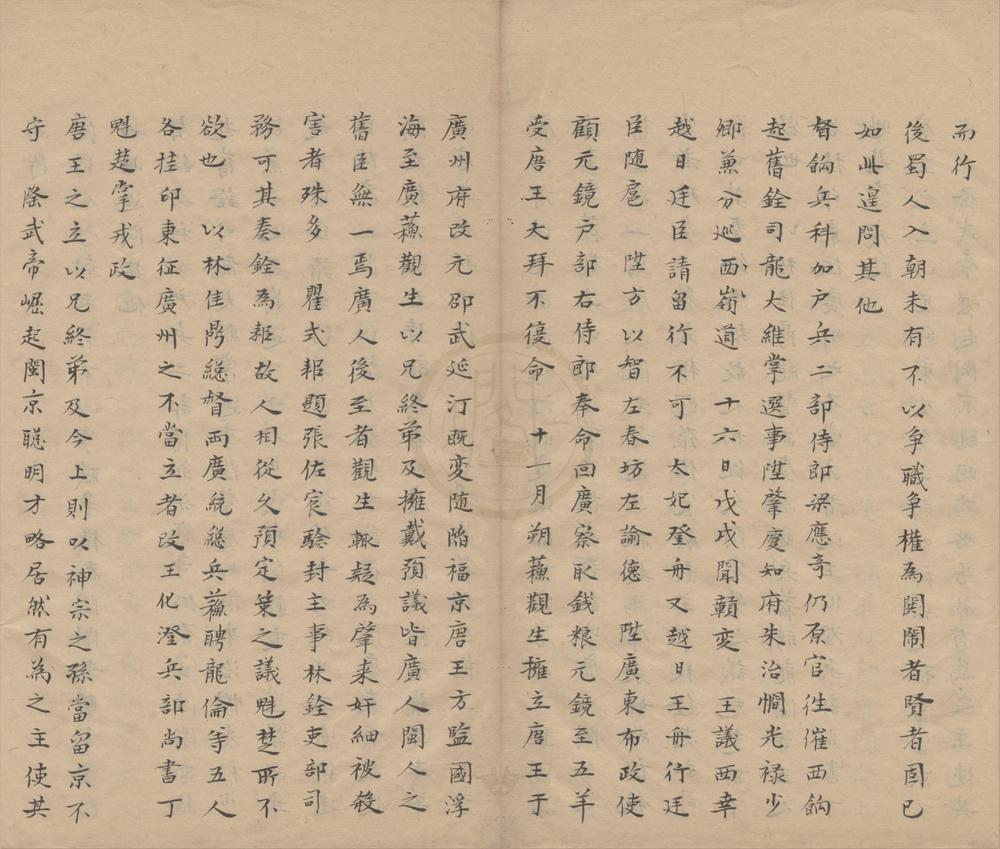 而行
後蜀人入朝未有不以争職争權為鬨鬧者賢者固已
如此遑問其他
督餉兵科加户兵二部侍郎梁應奇仍原官徃催西餉
起舊銓司龍大維掌選事陞肇慶知府朱治㦓光禄少
卿兼分巡西嶺道　十六日戊戌聞贛变　王議西幸
越日廷臣請留行不可太妃登舟又越日王舟行廷
臣随扈一陞方以智左春坊左諭德陞廣東布政使
顧元鏡户部右侍郎奉命回廣察取錢粮元鏡至五羊
受唐王大拜不復命　十一月朔蘓觀生擁立唐王于
廣州府改元邵武延汀既变随陷福京唐王方監國浮
海至廣蘓觀生以兄終弟及擁戴預議皆廣人閩人之
舊臣無一焉廣人後至者觀生輙疑為肇来奸細被殺
害者殊多　瞿式耜題張佐宸騐封主事林銓吏部司
務可其奏銓為耜故人相從久預定策之議魁楚所不
欲也　以林佳鼎総督两廣統総兵蘓聘龍倫等五人
各挂印東征廣州之不當立者改王化澄兵部尚書丁
魁楚掌戎政
唐王之立以兄終弟及今上則以神宗之孫當留京不
守隆武帝崛起閩京聡明才略居然有為之主使其